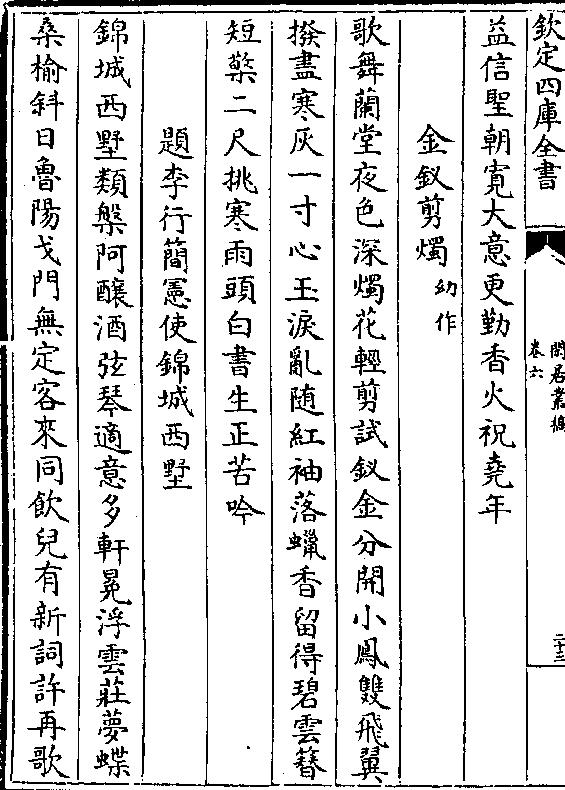 欽定四庫全書
閒居叢稿
卷六
二十三
益信聖朝寛大意更勤香火祝堯年
金釵剪燭幼作
歌舞蘭堂夜色深燭花輕剪試釵金分開小鳳雙飛翼
撥盡寒灰一寸心玉淚亂随紅袖落蠟香留得碧雲簪
短檠二尺挑寒雨頭白書生正苦吟
題李行簡憲使錦城西墅
錦城西墅類槃阿釀酒弦琴適意多軒冕浮雲莊夢蝶
桑榆斜日魯陽戈門無定客來同飲兒有新詞許再歌